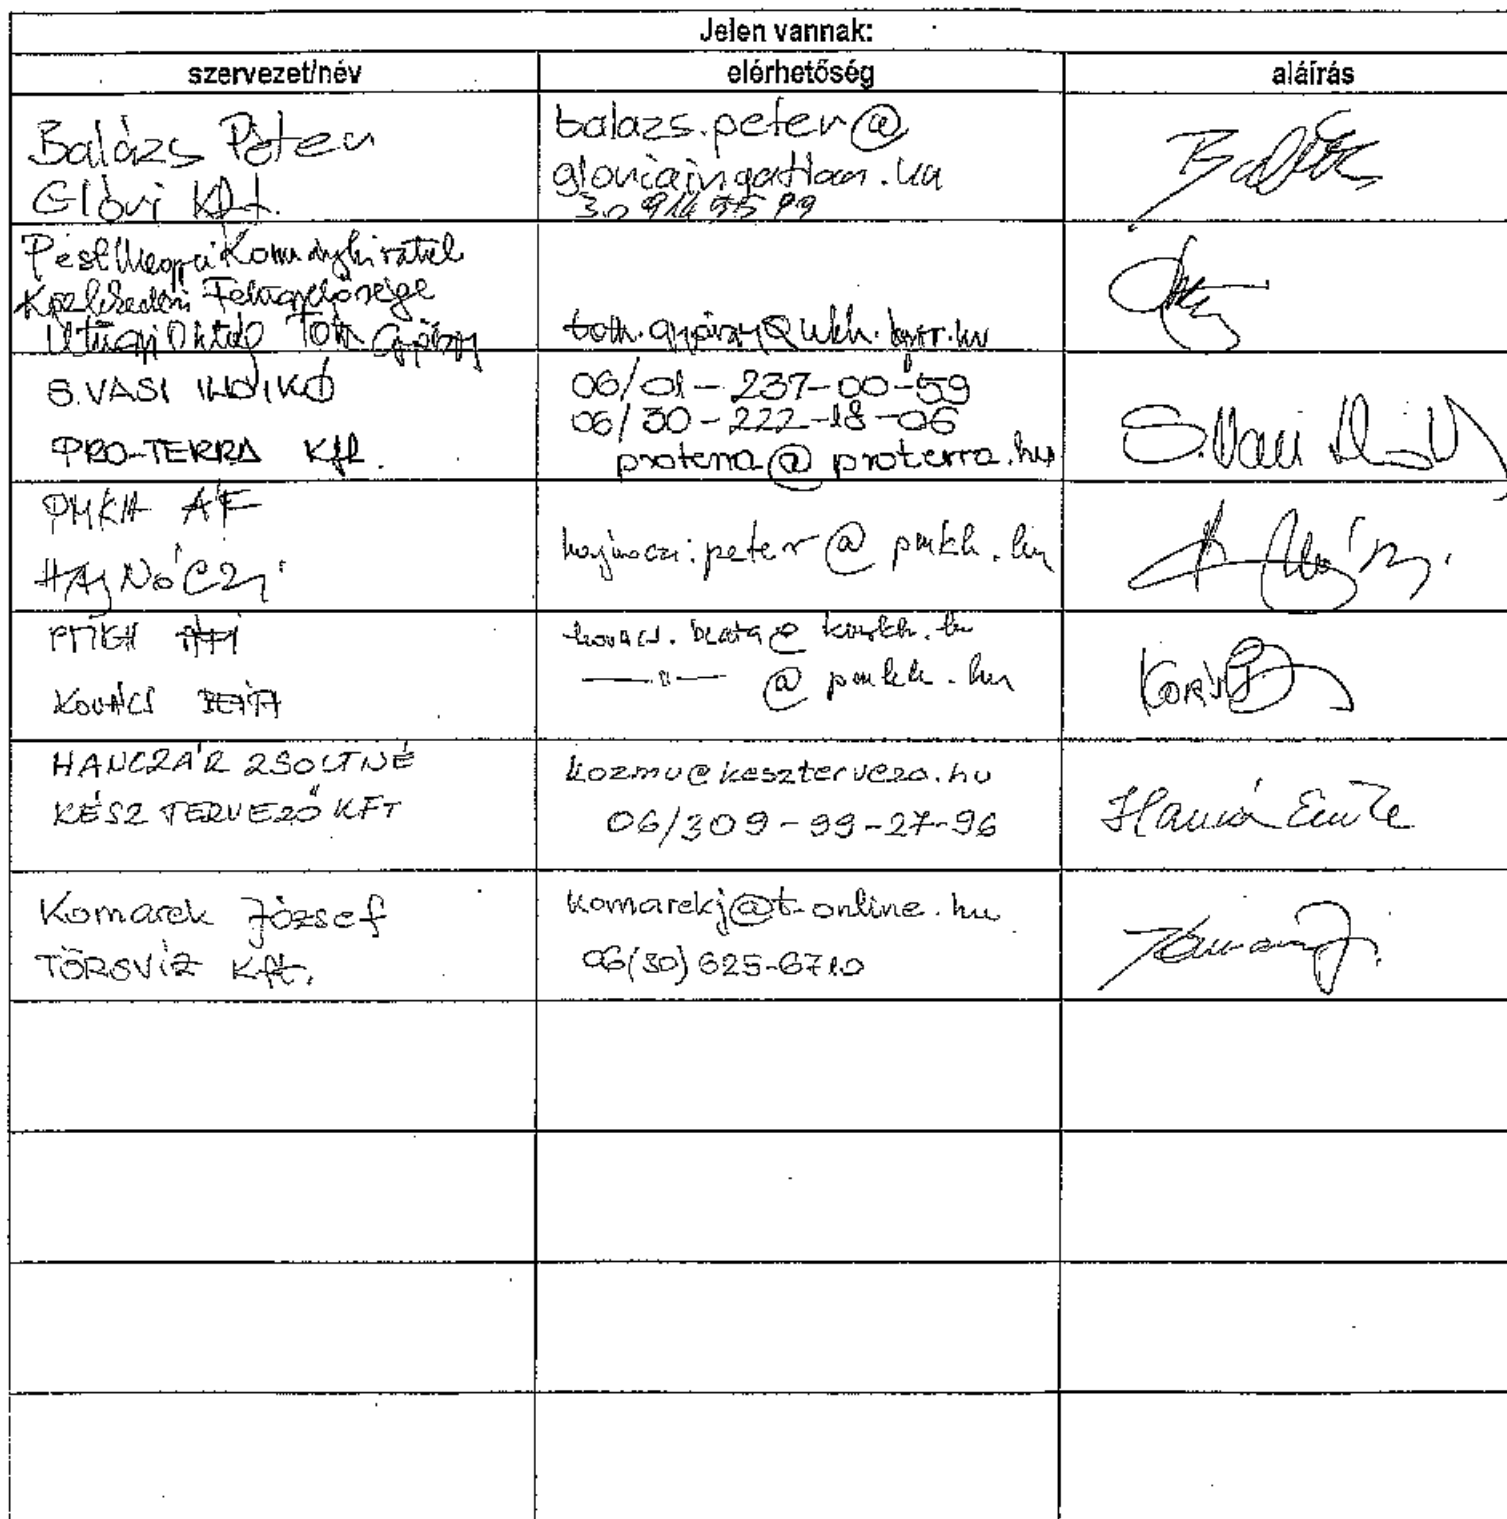 Jelen vannak:
szervezet/név elérhetőség aláírás
Balázs Péter
Glóvi Kft.
balazs.peter@
gloriaingatlan.hu
Pest Megyei Kormányhivatal
Közlekedési Felügyelősége
Útügyi Tóth György
S. VASI ILDIKÓ
PRO-TERRA Kft.
06/01-237-00-59
06/30-222-18-06
proterra@proterra.hu
S. Vasi Ildikó
PMKH ÁF
HAJNÓCZI
hajnoczi.peter@pmkh.hu
PMKH
KOVÁCS BEÁTA
kovacs.beata@
—"— @pmkh.hu
HANCZÁR ZSOLTNÉ
KÉSZ TERVEZŐ KFT
kozmu@kesztervezo.hu
06/309-99-27-96
Komarek József
TÖRSVÍZ Kft.
komarekj@t-online.hu
06(30) 625-6710